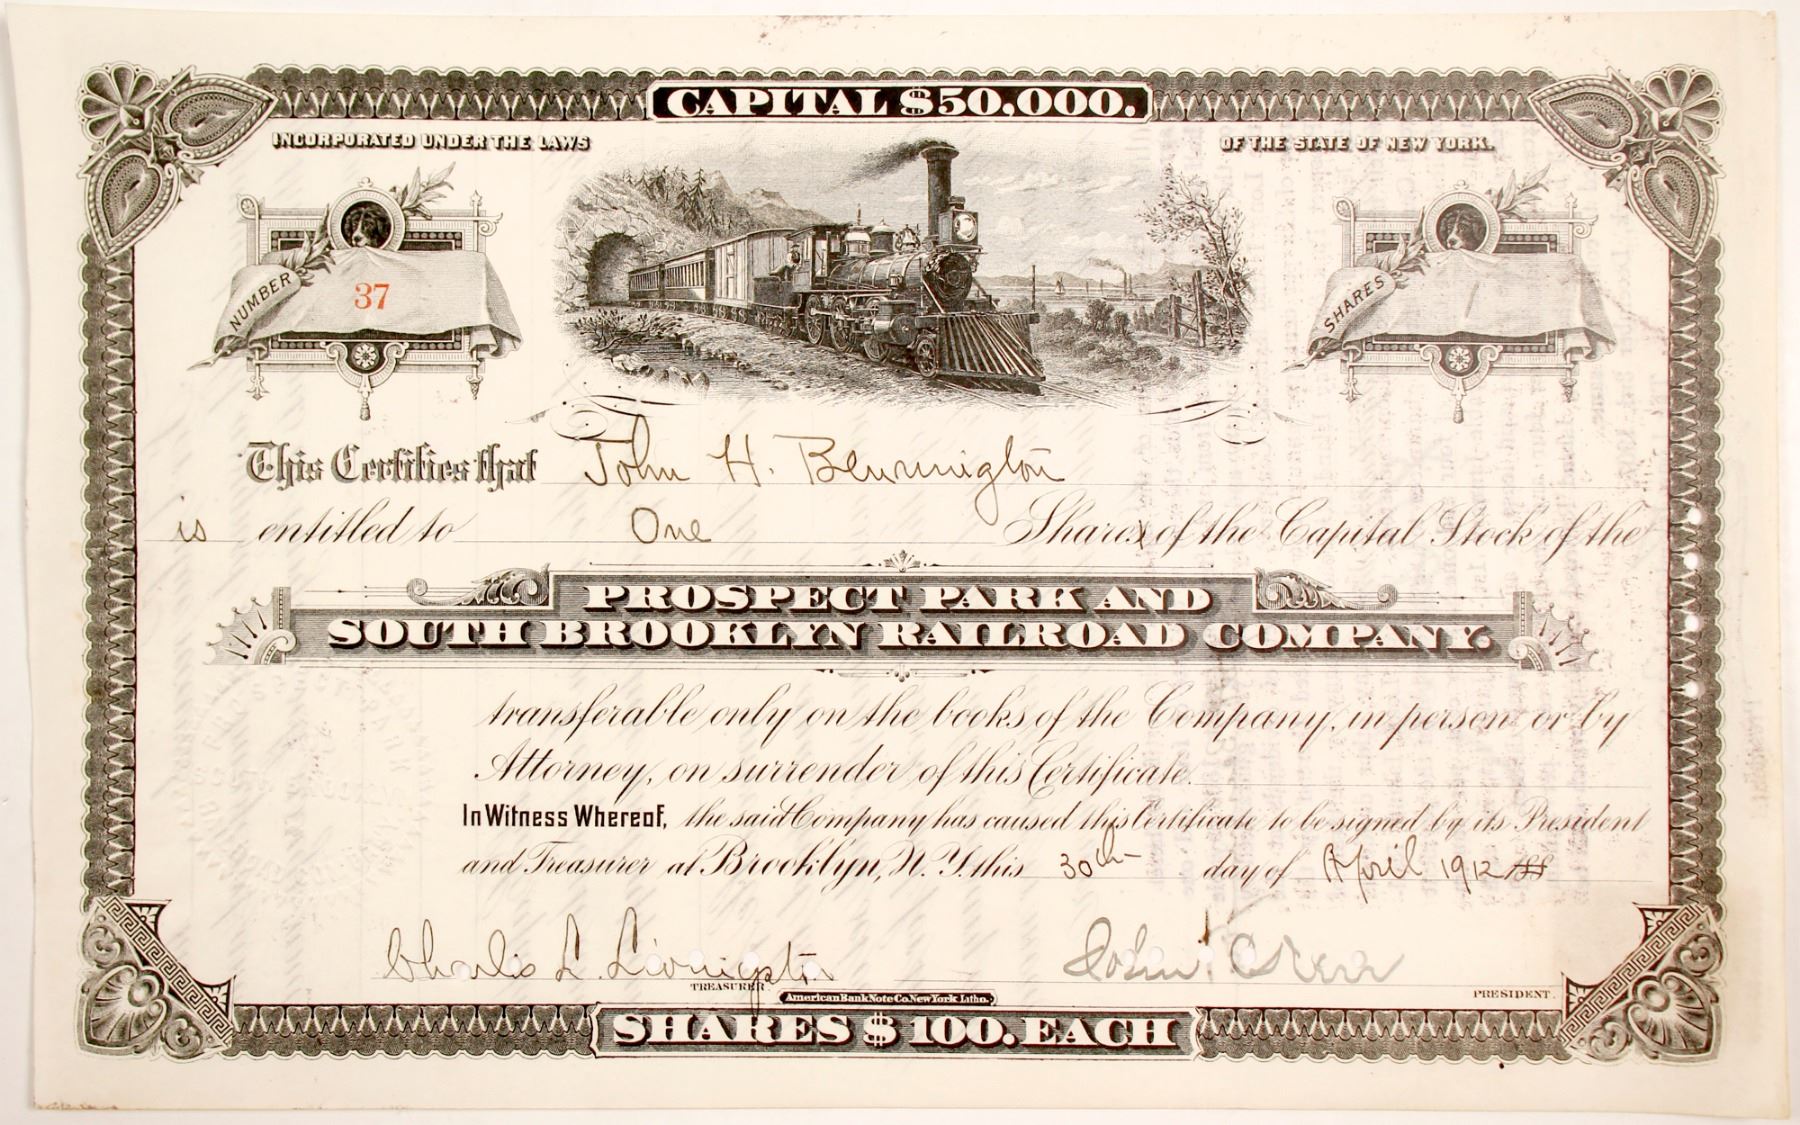 CAPITAL $50,000.
INCORPORATED UNDER THE LAWS OF THE STATE OF NEW YORK.
NUMBER 37
SHARES
This Certifies that John H. Bennington
is entitled to One Shares of the Capital Stock of the
PROSPECT PARK AND
SOUTH BROOKLYN RAILROAD COMPANY.
transferable only on the books of the Company, in person or by
Attorney, on surrender of this Certificate.
In Witness Whereof, the said Company has caused this Certificate to be signed by its President
and Treasurer at Brooklyn, N.Y. this 30th day of April 1912 188
Charles L. Livingston John
TREASURER
PRESIDENT.
American Bank Note Co. New York Litho.
SHARES $100. EACH